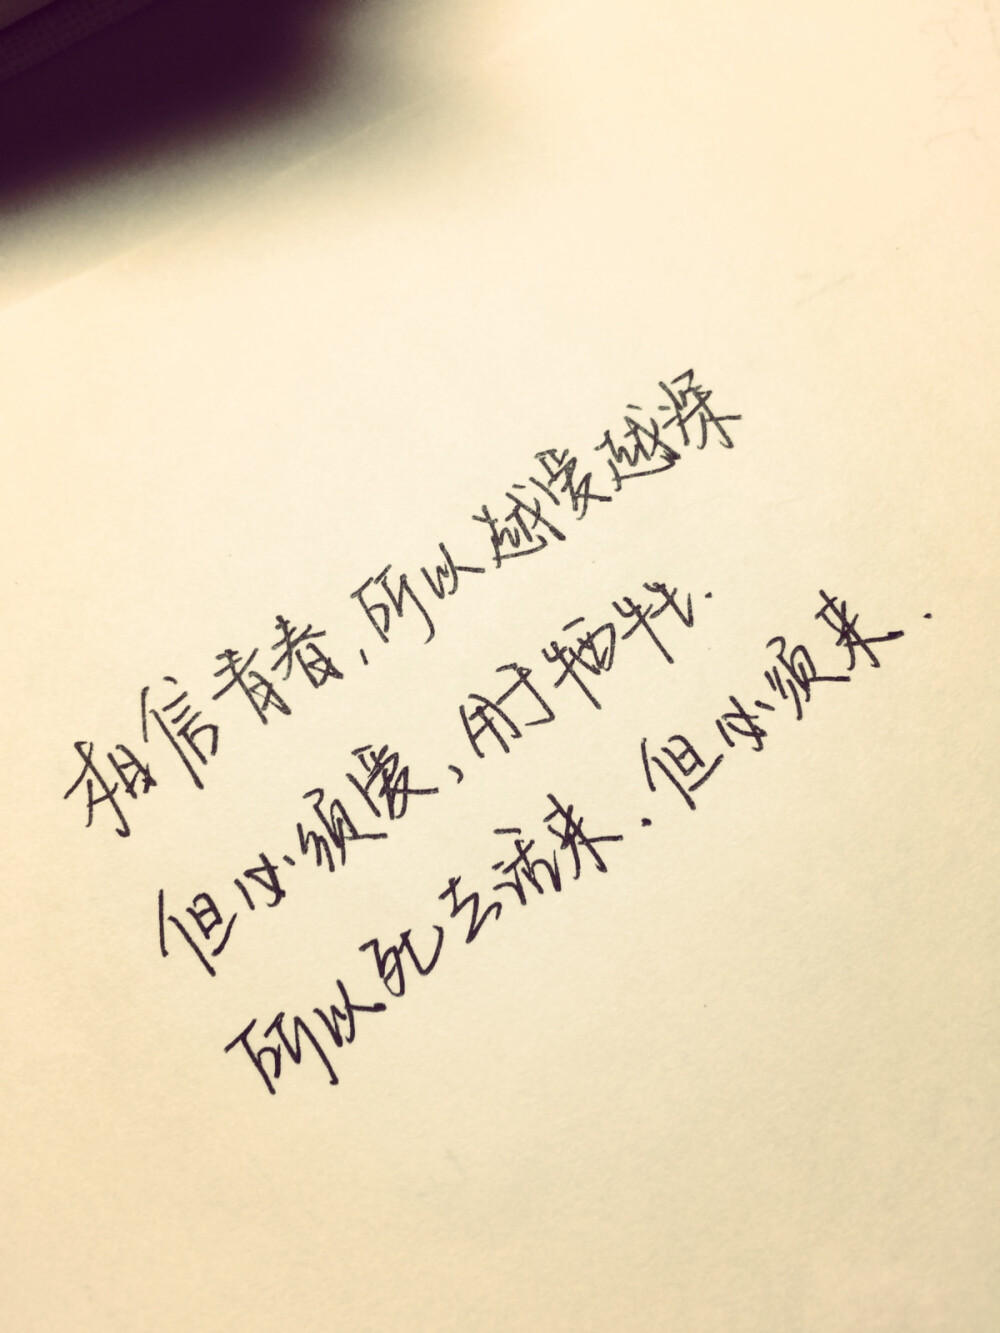 相信青春,所以越爱越深
但必须爱,用于牺牲.
所以死去活来.但必须来.